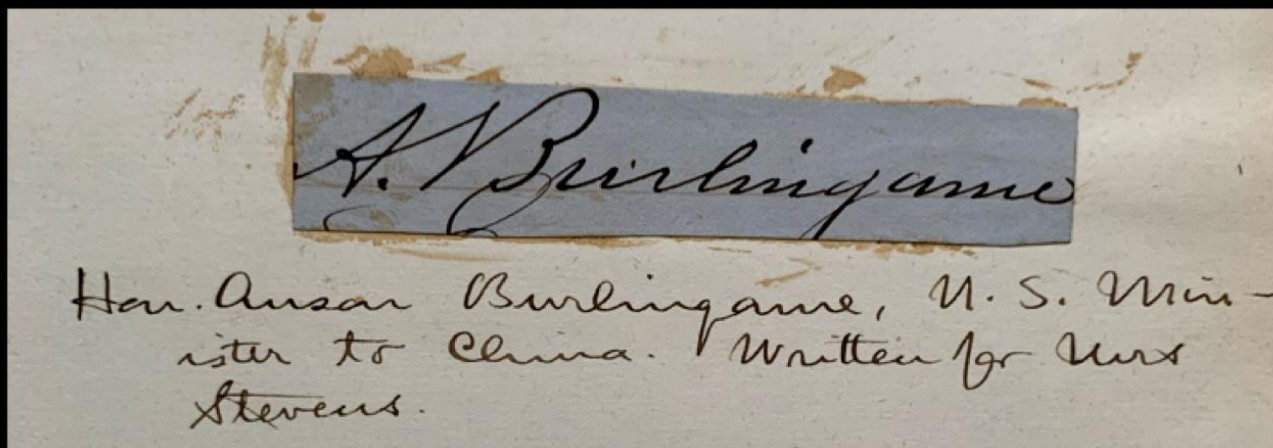 A. Burlingame
Hon. Anson Burlingame, U. S. Min-
ister to China. Written for Mrs
Stevens.